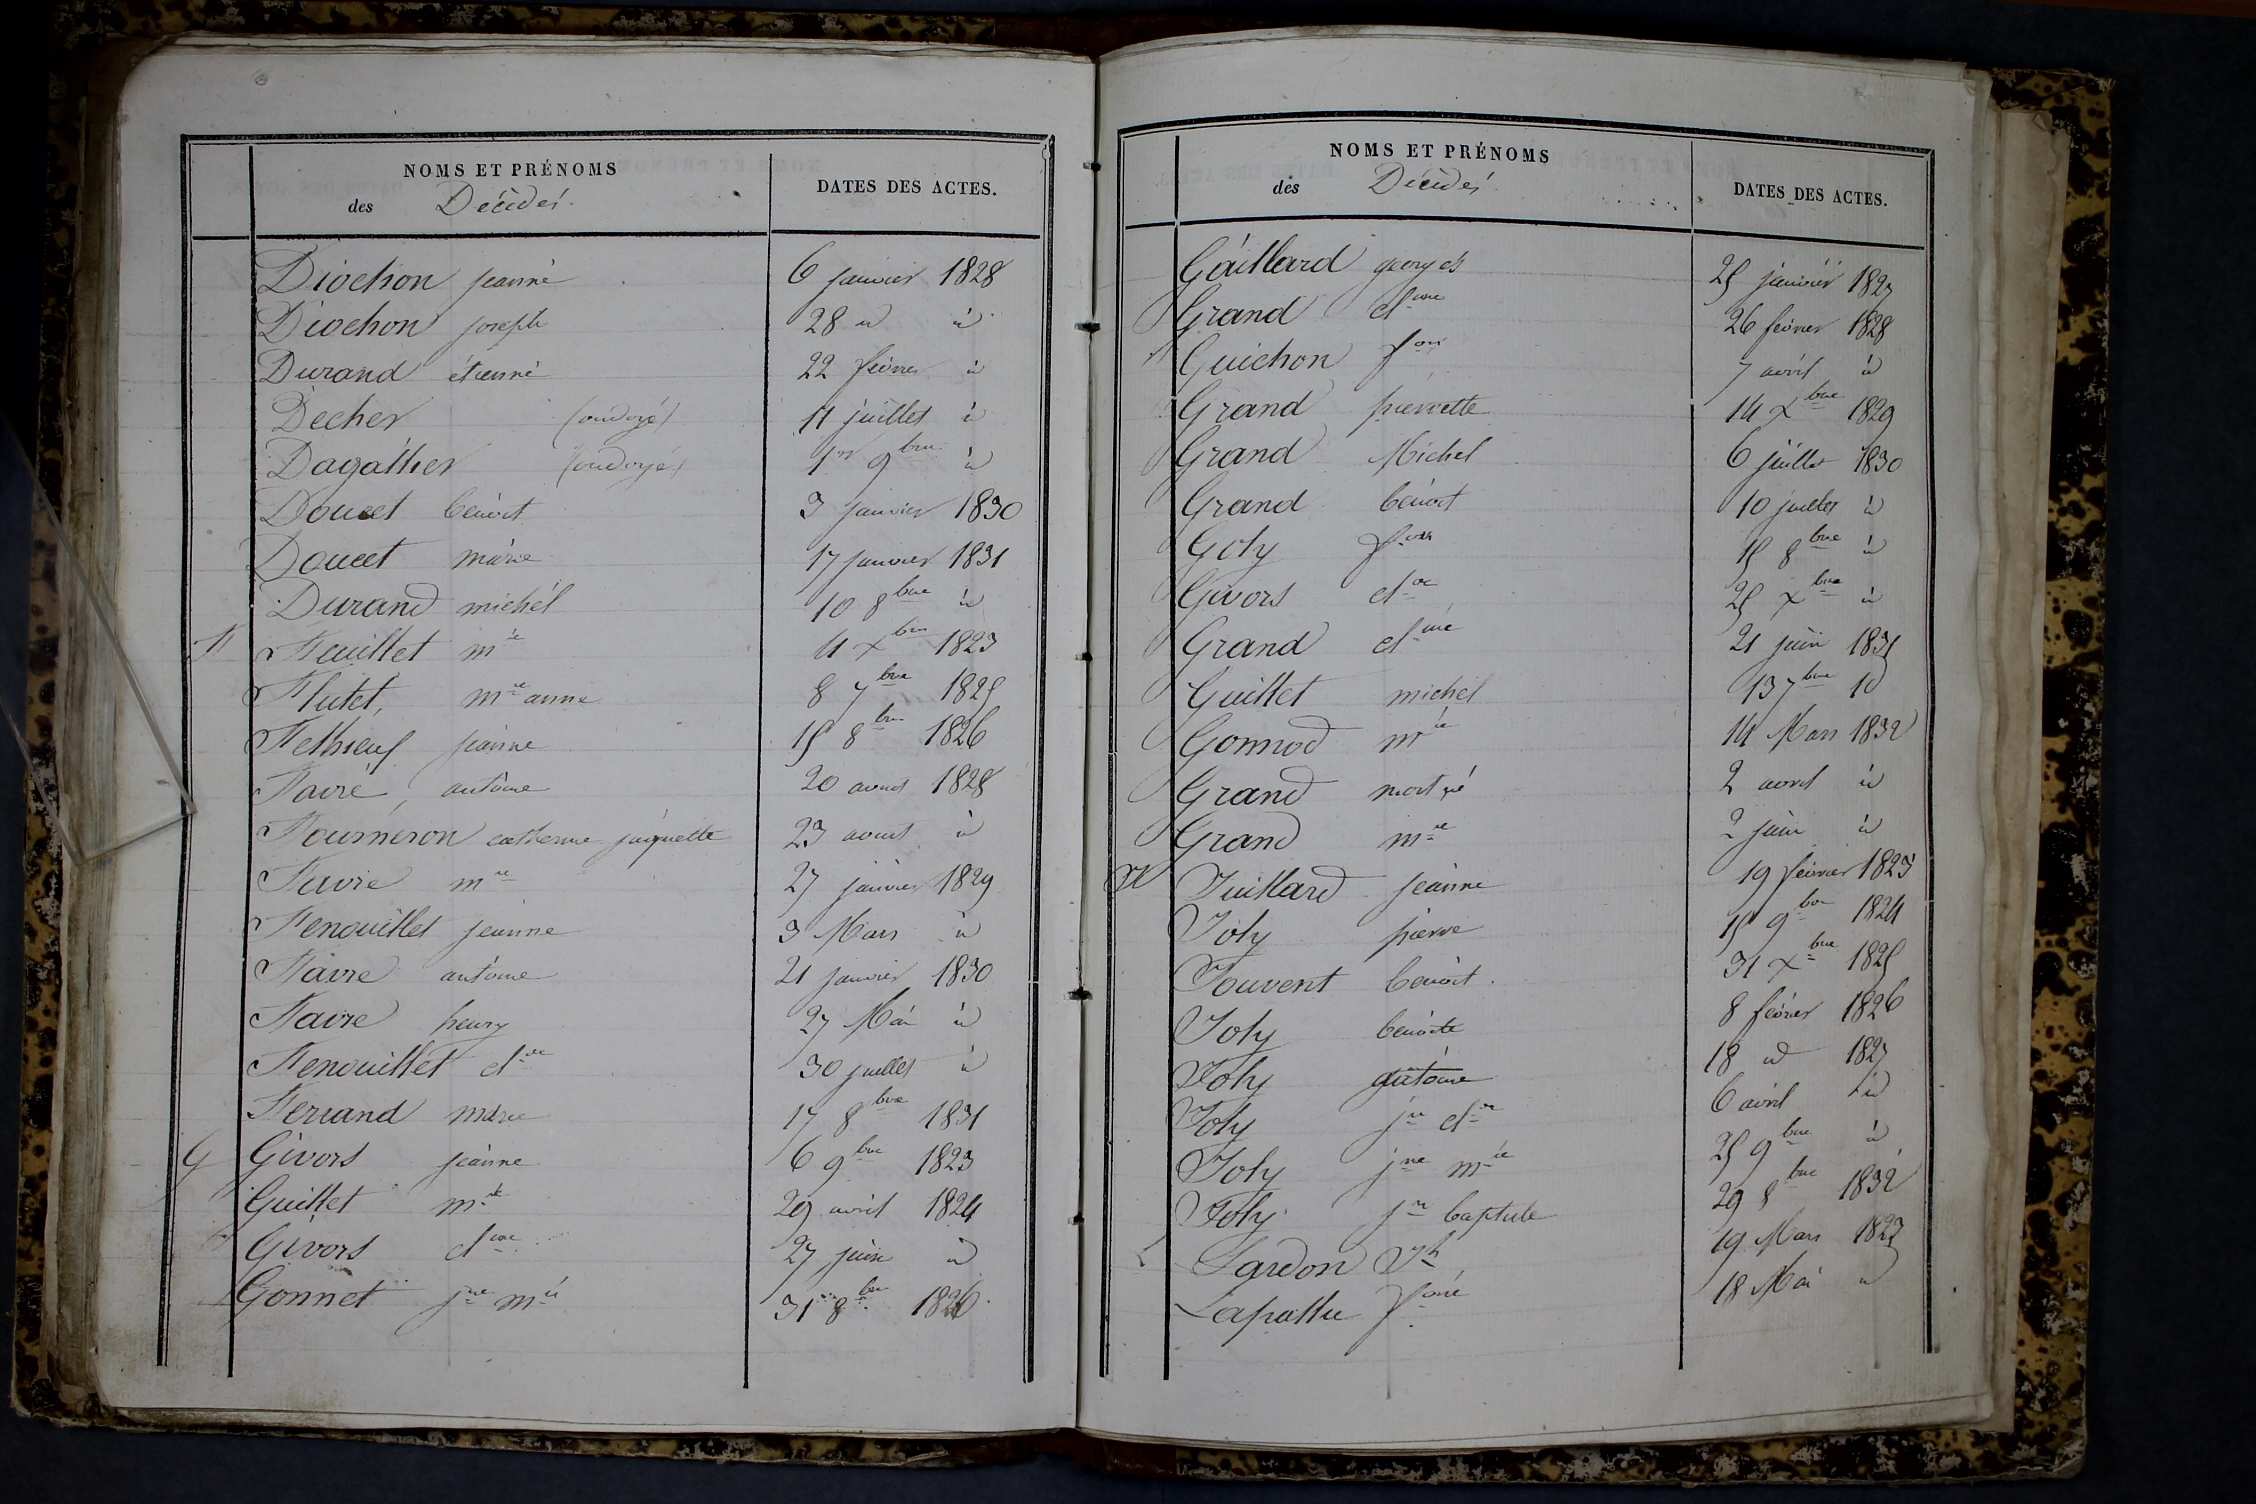 NOMS ET PRÉNOMS
des Décédés
DATES DES ACTES.
Diochon jeanne 6 janvier 1828
Diochon joseph 28 id id
Durand étienne 22 février id
Decher (ondoyé) 11 juillet id
Dagallier (ondoyé) 1er 9bre id
Doucet benoit 3 janvier 1830
Doucet marie 17 janvier 1831
Durand michel 10 8bre id
F Feuillet mie 4 xbre 1823
Flutet, mie anne 8 7bre 1825
jeanne 15 8bre 1826
Favre, antoine 20 aoust 1828
Fourneron catherine jaquette 23 aoust id
Favre mie 27 janvier 1829
Fenouillet jeanne 3 Mars id
Favre antoine 21 janvier 1830
Favre henry 27 Mai id
Fenouillet clde 30 juillet id
Ferrand marie 17 8bre 1831
G Givors jeanne 6 9bre 1823
Guillet mie 29 avril 1824
Givors clme 27 juin id
Gonnet jne mie 31 8bre 1826
NOMS ET PRÉNOMS
des Décédés
DATES DES ACTES.
Gaillard georges 25 janvier 1827
Grand clme 26 février 1828
Guichon fois 7 avril id
Grand pierrette 14 xbre 1829
Grand Michel 6 juillet 1830
Grand benoit 10 juillet id
Goly fois 15 8bre id
Givors clde 25 xbre id
Grand clme 21 juin 1831
Guillet michel 13 7bre id
Gonnod mie 14 Mars 1832
Grand mort né 2 avril id
Grand mie 2 juin id
Juillard jeanne 19 février 1823
Joly pierre 15 9bre 1824
Jouvent benoit 31 xbre 1825
Joly benoite 8 février 1826
Joly antoine 18 id 1827
Joly jn clde 6 avril id
Joly jne mie 25 9bre id
Joly jn baptiste 29 8bre 1832
L Lardon Jh 19 Mars 1823
foise 18 Mai id